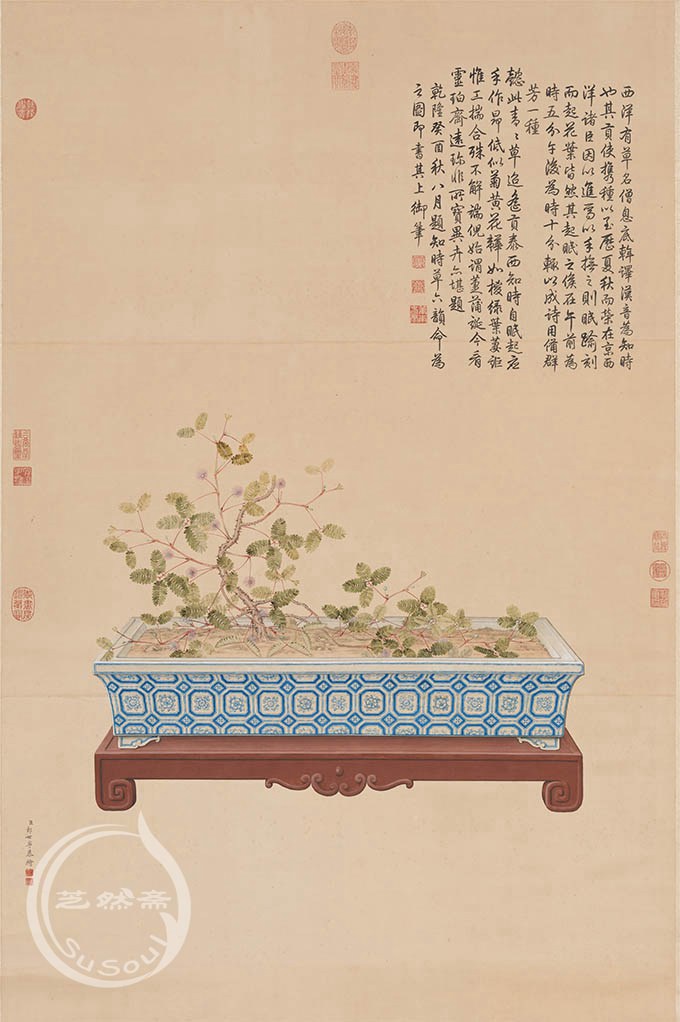 西洋有草名僧息底斡譯漢音為知時
也其貢使携種以至歷夏秋而榮在京西
洋諸臣因以進焉以手撫之則眠踰刻
而起花葉皆然其起眠之候在午前為
時五分午後為時十分輒以成詩用備群
芳一種
懿此青〻草迢遙貢泰西知時自眠起應
手作昂低似菊黃花韡如椶綠葉萋詎
惟工揣合殊不解端倪始謂萐蒲誕今看
靈珀齊遠珍非所寶異卉亦堪題
乾隆癸酉秋八月題知時草六韻命為
之圖即書其上御筆
臣郎世寧恭繪
芝然斋
SuSoul